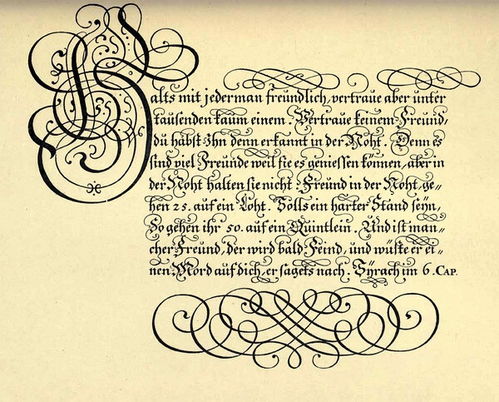 Halts mit jederman freündlich, vertraue aber unter
tausenden kaum einem. Vertraue keinem Freünd,
dü habst Ihn denn erkannt in der Noht. Denn es
sind viel Freünde weil sie es geniessen können, aber in
der Noht halten sie nicht: Freünd in der Noht, ge-
hen 25. auf ein Loht. Solls ein harter Stand seyn,
So gehen ihr 50. auf ein Qüintlein. Ünd ist man-
cher Freünd, der wird bald Feind, ünd wüste er ei-
nen Mord auf dich, er sagets nach. Syrach im 6. CAP.